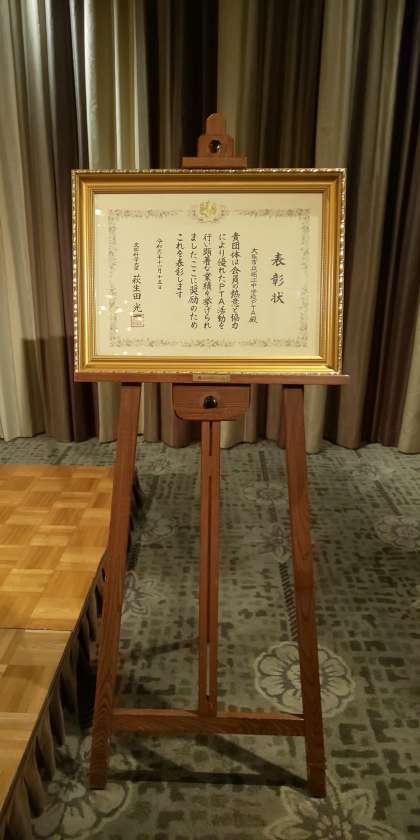 表彰状
大阪市立昭和中学校PTA殿
貴団体は会員の熱意と協力
により優れたPTA活動を
行い顕著な業績を挙げられ
ましたここに奨励のため
これを表彰します
文部科学大臣 萩生田光一